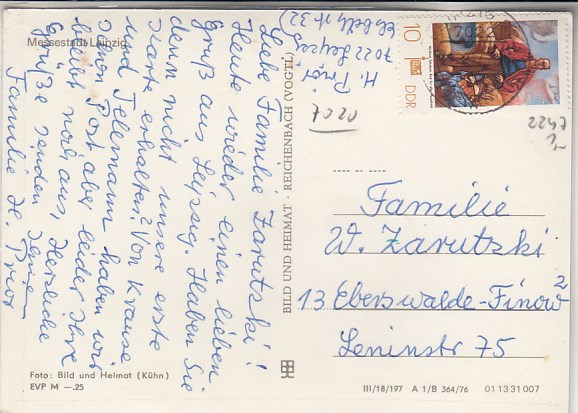 Messestadt Leipzig
H. Prior
7022 Leipzig
Liebe Familie Zarutzki!
Heute wieder einen lieben
Gruß aus Leipzig. Haben Sie
denn nicht unsere erste
Karte erhalten? Von Krause
und Telemann haben wir
schon Post aber leider Ihre
bleibt noch aus. Herzliche
Grüße senden Ihnen
Familie H. Prior
Foto: Bild und Heimat (Kühn)
EVP M —.25
BILD UND HEIMAT · REICHENBACH (VOGTL)
7020
10
DDR
2247
1,-
Familie
W. Zarutzki
13 Eberswalde-Finow 2
Leninstr 75
III/18/197 A 1/B 364/76 01 13 31 007